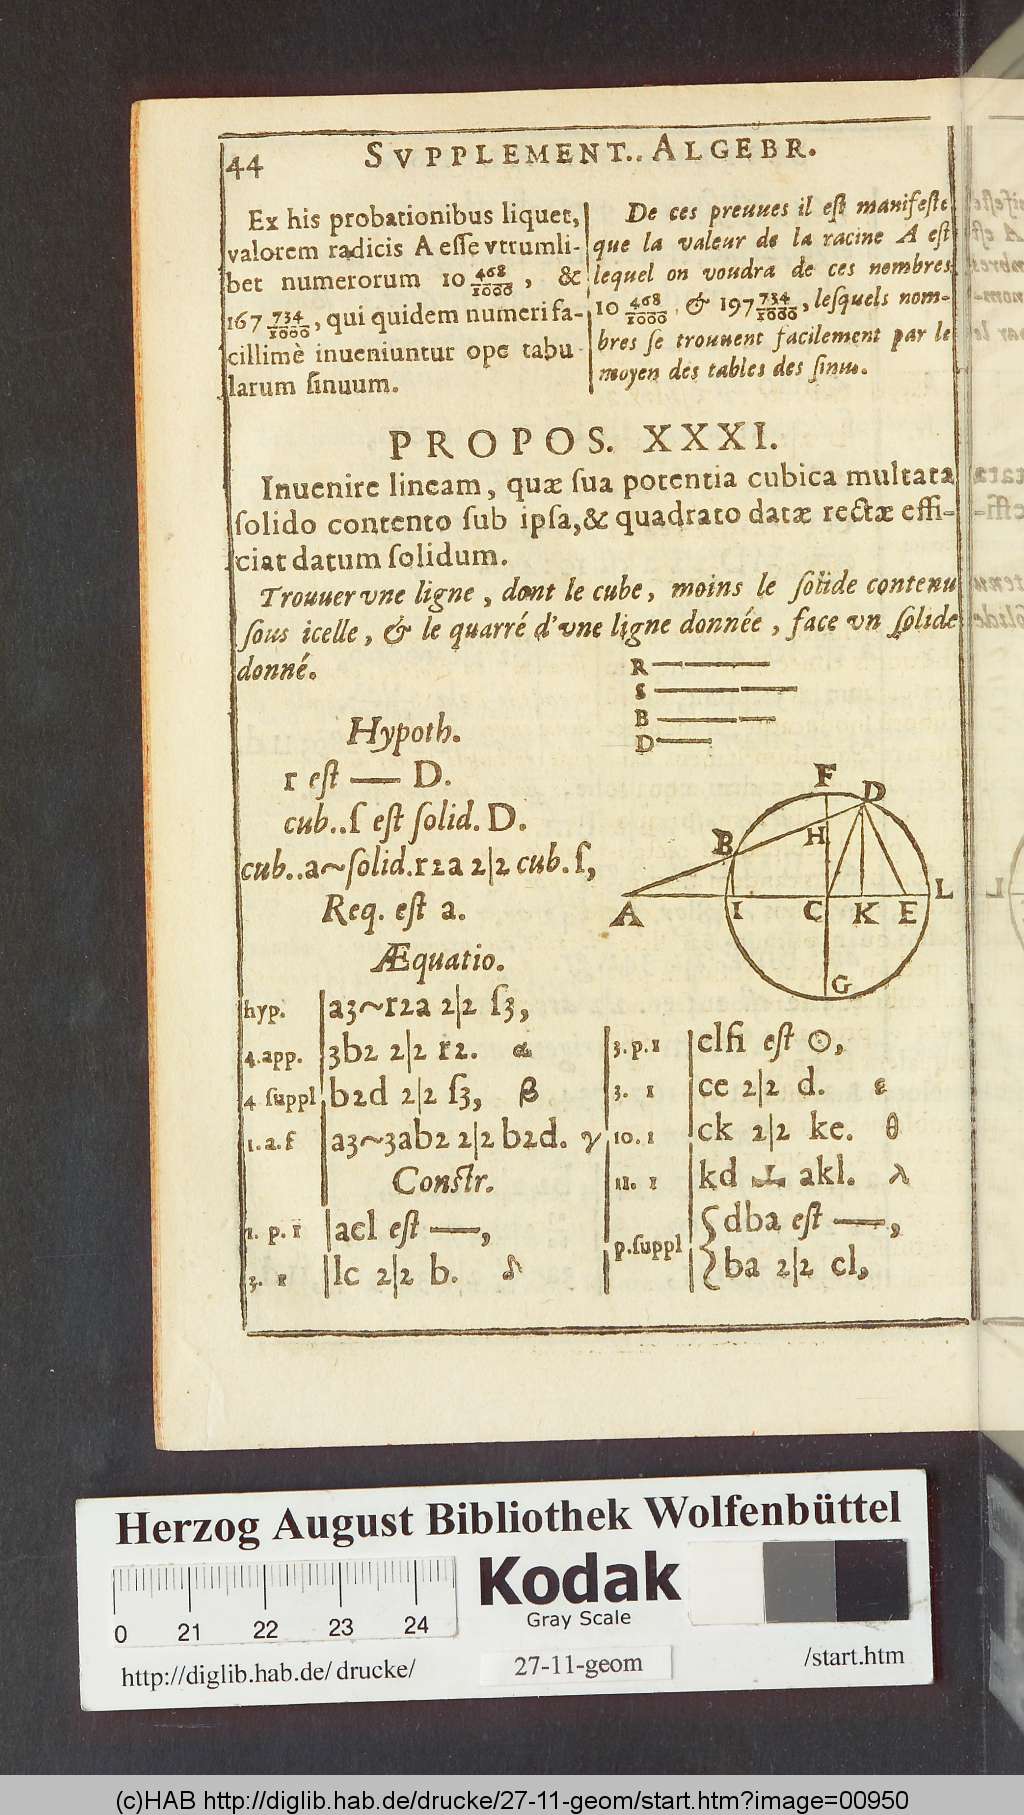 44 SVPPLEMENT.. ALGEBR.
Ex his probationibus liquet,
valorem radicis A eſſe vtrumli-
bet numerorum 10 468/1000, &
167 734/1000, qui quidem numeri fa-
cillimè inueniuntur ope tabu
larum ſinuum.
De ces preuues il eſt manifeſte
que la valeur de la racine A eſt
lequel on voudra de ces nombres
10 468/1000, & 197 734/1000, leſquels nom-
bres ſe trouuent facilement par le
moyen des tables des ſinus.
PROPOS. XXXI.
Inuenire lineam, quæ ſua potentia cubica multata
ſolido contento ſub ipſa, & quadrato datæ rectæ effi-
ciat datum ſolidum.
Trouuer vne ligne, dont le cube, moins le ſolide contenu
ſous icelle, & le quarré d'vne ligne donnée, face vn ſolide
donné.
R
S
B
D
Hypoth.
r eſt — D.
cub..ſ eſt ſolid. D.
cub..a~ſolid.r2a 2|2 cub. ſ,
Req. eſt a.
F
D
B
H
A
I
C
K
E
L
G
Æquatio.
hyp. a3~r2a 2|2 ſ3,
4.app. 3b2 2|2 r2. α
4 ſuppl b2d 2|2 ſ3, β
1.a.f a3~3ab2 2|2 b2d. γ
Conſtr.
1. p. 1 acl eſt —,
3. 1 lc 2|2 b. δ
3. p. 1 clfi eſt ⊙,
3. 1 ce 2|2 d. ε
10. 1 ck 2|2 ke. θ
11. 1 kd ⊥ akl. λ
p.ſuppl { dba eſt —,
ba 2|2 cl,
Herzog August Bibliothek Wolfenbüttel
Kodak
Gray Scale
0 21 22 23 24
http://diglib.hab.de/drucke/ 27-11-geom /start.htm
(c)HAB http://diglib.hab.de/drucke/27-11-geom/start.htm?image=00950